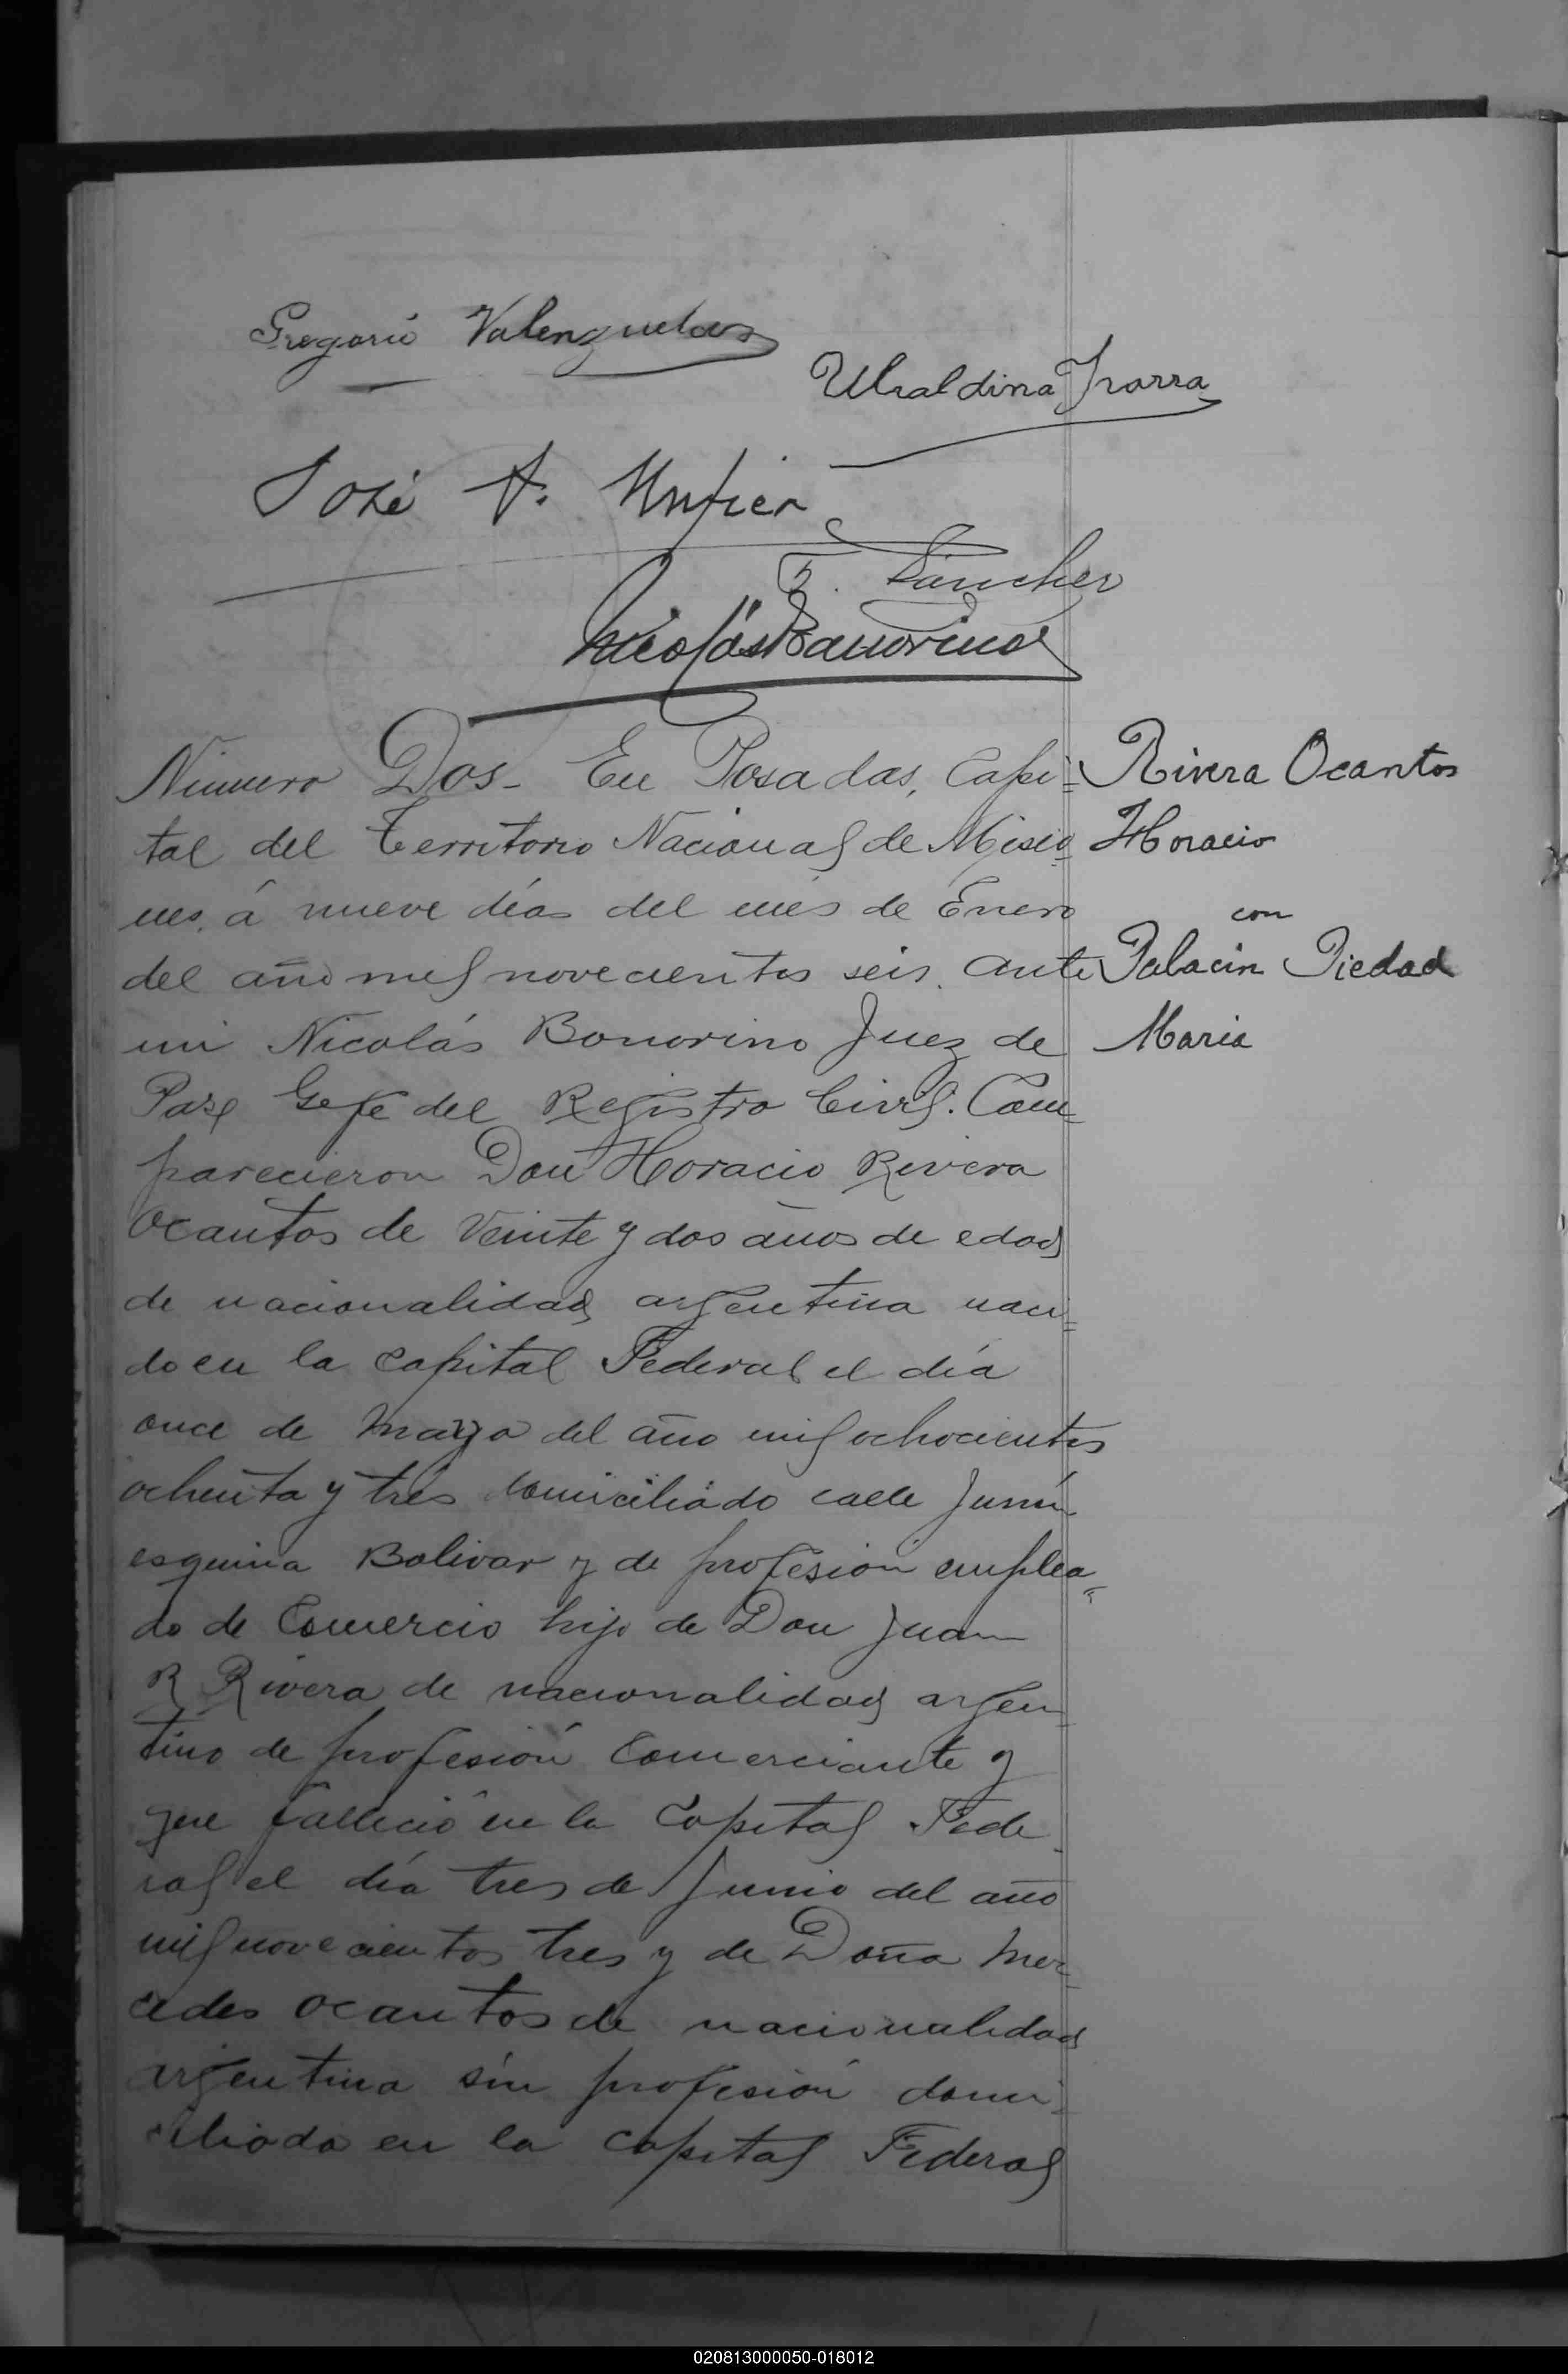 Gregorio Valenzuela
Ubaldina Ybarra
José A.
F. Sánchez
Nicolás Bonorino
Número Dos - En Posadas, Capi=
tal del Territorio Nacional de Misio
nes, á nueve días del mes de Enero
del año mil novecientos seis. ante
mi Nicolás Bonorino Juez de
Paz Gefe del Registro Civil. Com
parecieron Don Horacio Rivera
Ocantos de veinte y dos años de edad
de nacionalidad argentina naci=
do en la Capital Federal el día
once de Mayo del año mil ochocientos
ochenta y tres domiciliado calle Junín
esquina Bolivar y de profesión emplea=
do de Comercio hijo de Don Juan
R Rivera de nacionalidad argen
tino de profesión Comerciante y
que falleció en la Capital Fede
ral el día tres de Junio del año
mil novecientos tres y de Doña Mer
cedes Ocantos de nacionalidad
argentina sin profesión domi
ciliada en la Capital Federal
Rivera Ocantos
Horacio
con
Palacin Piedad
Maria
020813000050-018012